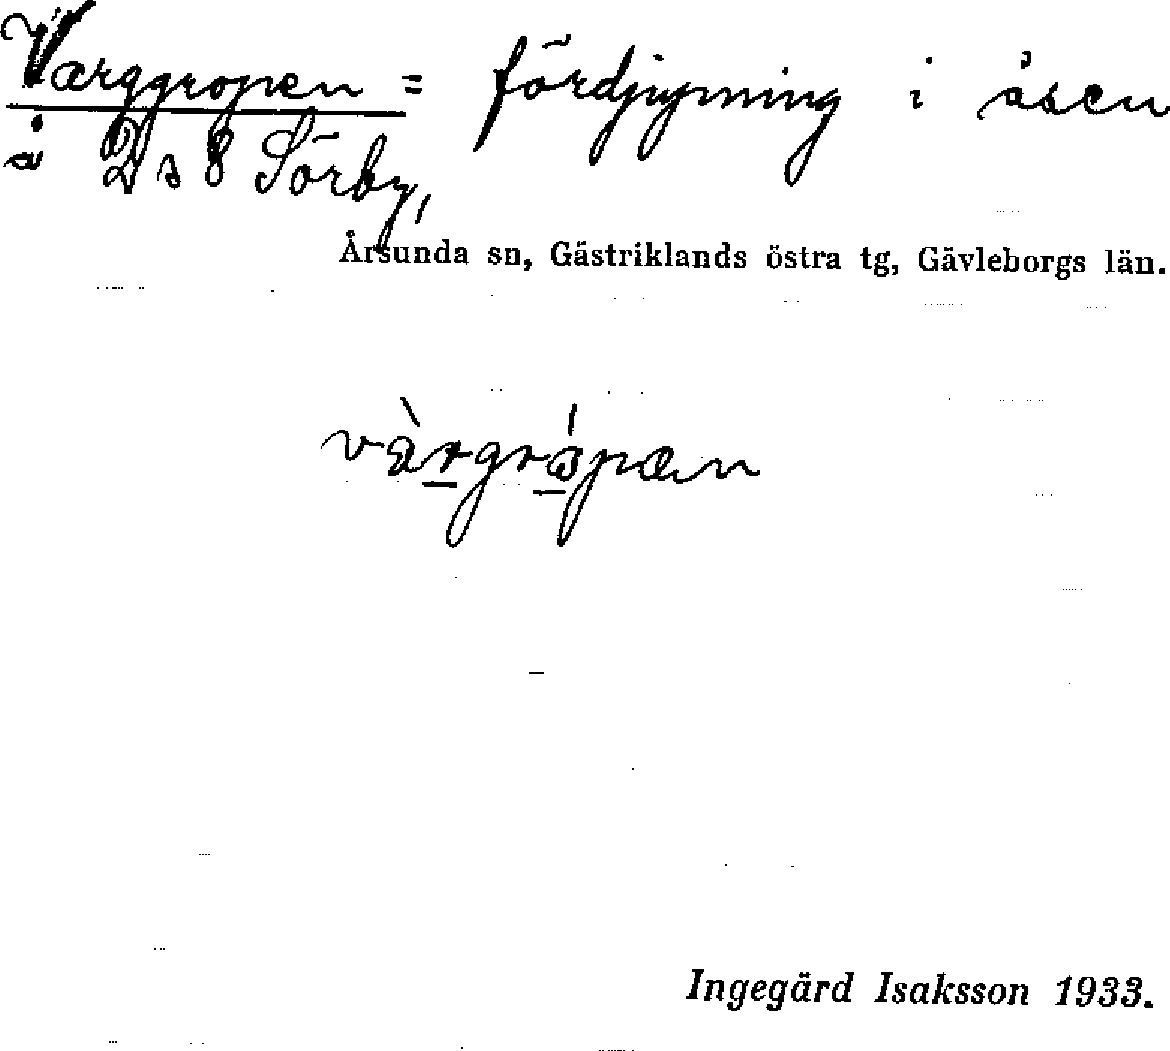 Varggropen = fördjupning i åsen
å 2 s 8 Sörby,
Årsunda sn, Gästriklands östra tg, Gävleborgs län.
Ingegärd Isaksson 1933.